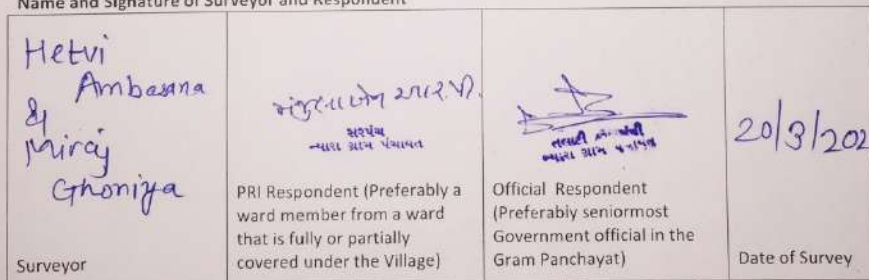 Name and Signature of Surveyor and Respondent
Hetvi
Ambasana
&
Miraj
Ghoniya
Surveyor
મંજુલાબેન આર.પી.
સરપંચ
ન્યારા ગ્રામ પંચાયત
PRI Respondent (Preferably a
ward member from a ward
that is fully or partially
covered under the Village)
તલાટી કમ મંત્રી
ન્યારા ગ્રામ પંચાયત
Official Respondent
(Preferably seniormost
Government official in the
Gram Panchayat)
20/3/202
Date of Survey